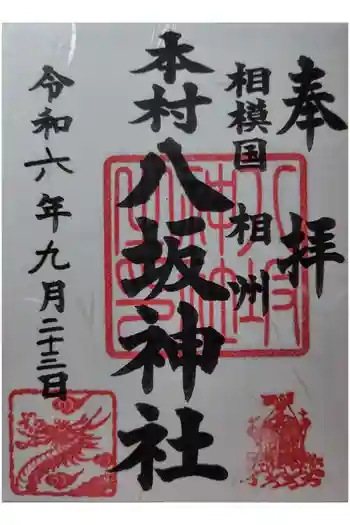 奉拝
相模国 相州
本村八坂神社
令和六年九月二十三日